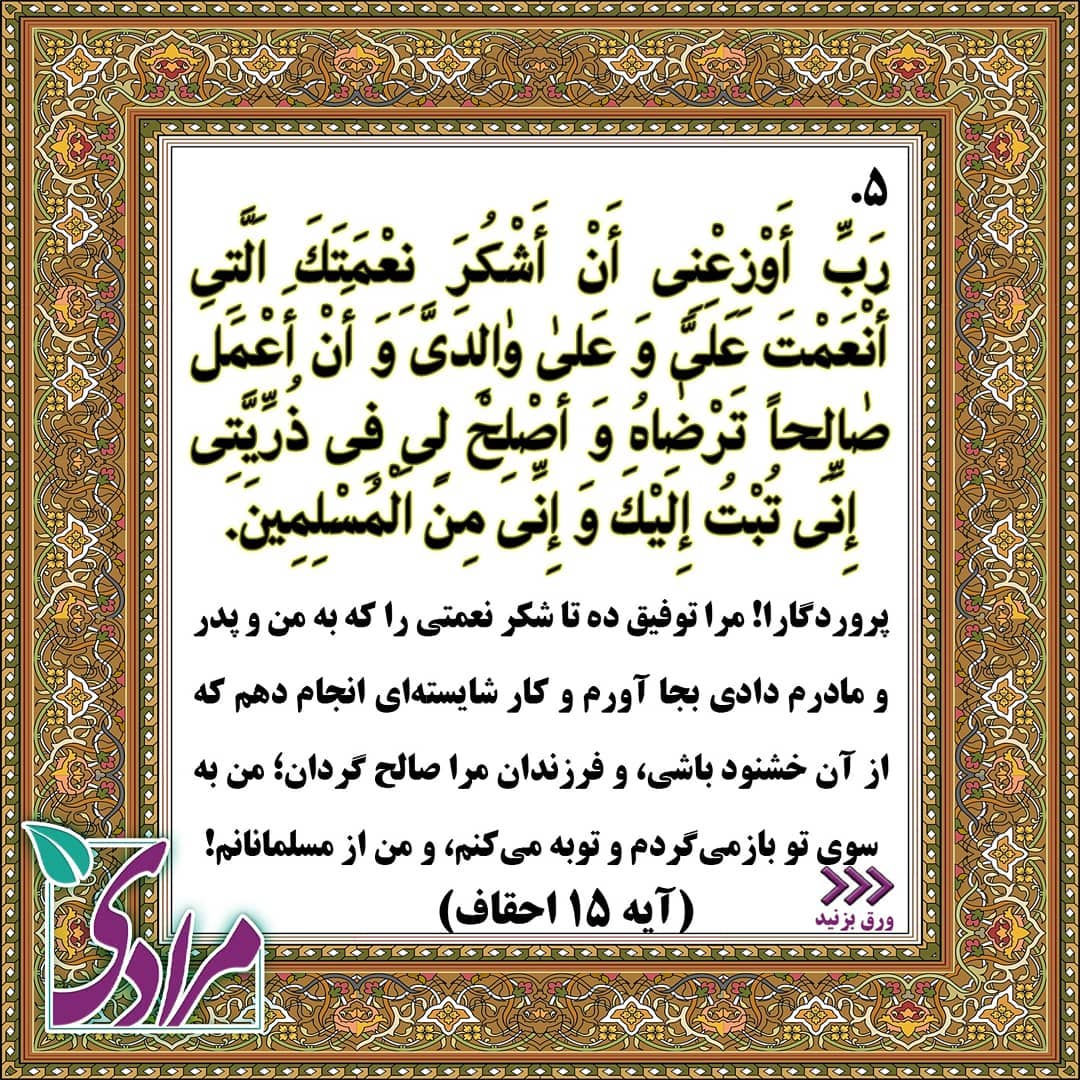 ۵.
رَبِّ أَوْزِعْنِی أَنْ أَشْکُرَ نِعْمَتِكَ الَّتِی
أَنْعَمْتَ عَلَیَّ وَ عَلیٰ وٰالِدَیَّ وَ أَنْ أَعْمَلَ
صٰالِحاً تَرْضٰاهُ وَ أَصْلِحْ لِی فِی ذُرِّیَّتِی
إِنِّی تُبْتُ إِلَیْكَ وَ إِنِّی مِنَ الْمُسْلِمِینَ.
پروردگارا! مرا توفیق ده تا شکر نعمتی را که به من و پدر
و مادرم دادی بجا آورم و کار شایسته‌ای انجام دهم که
از آن خشنود باشی، و فرزندان مرا صالح گردان؛ من به
سوی تو بازمی‌گردم و توبه می‌کنم، و من از مسلمانانم!
(آیه ۱۵ احقاف)
ورق بزنید
مرادی